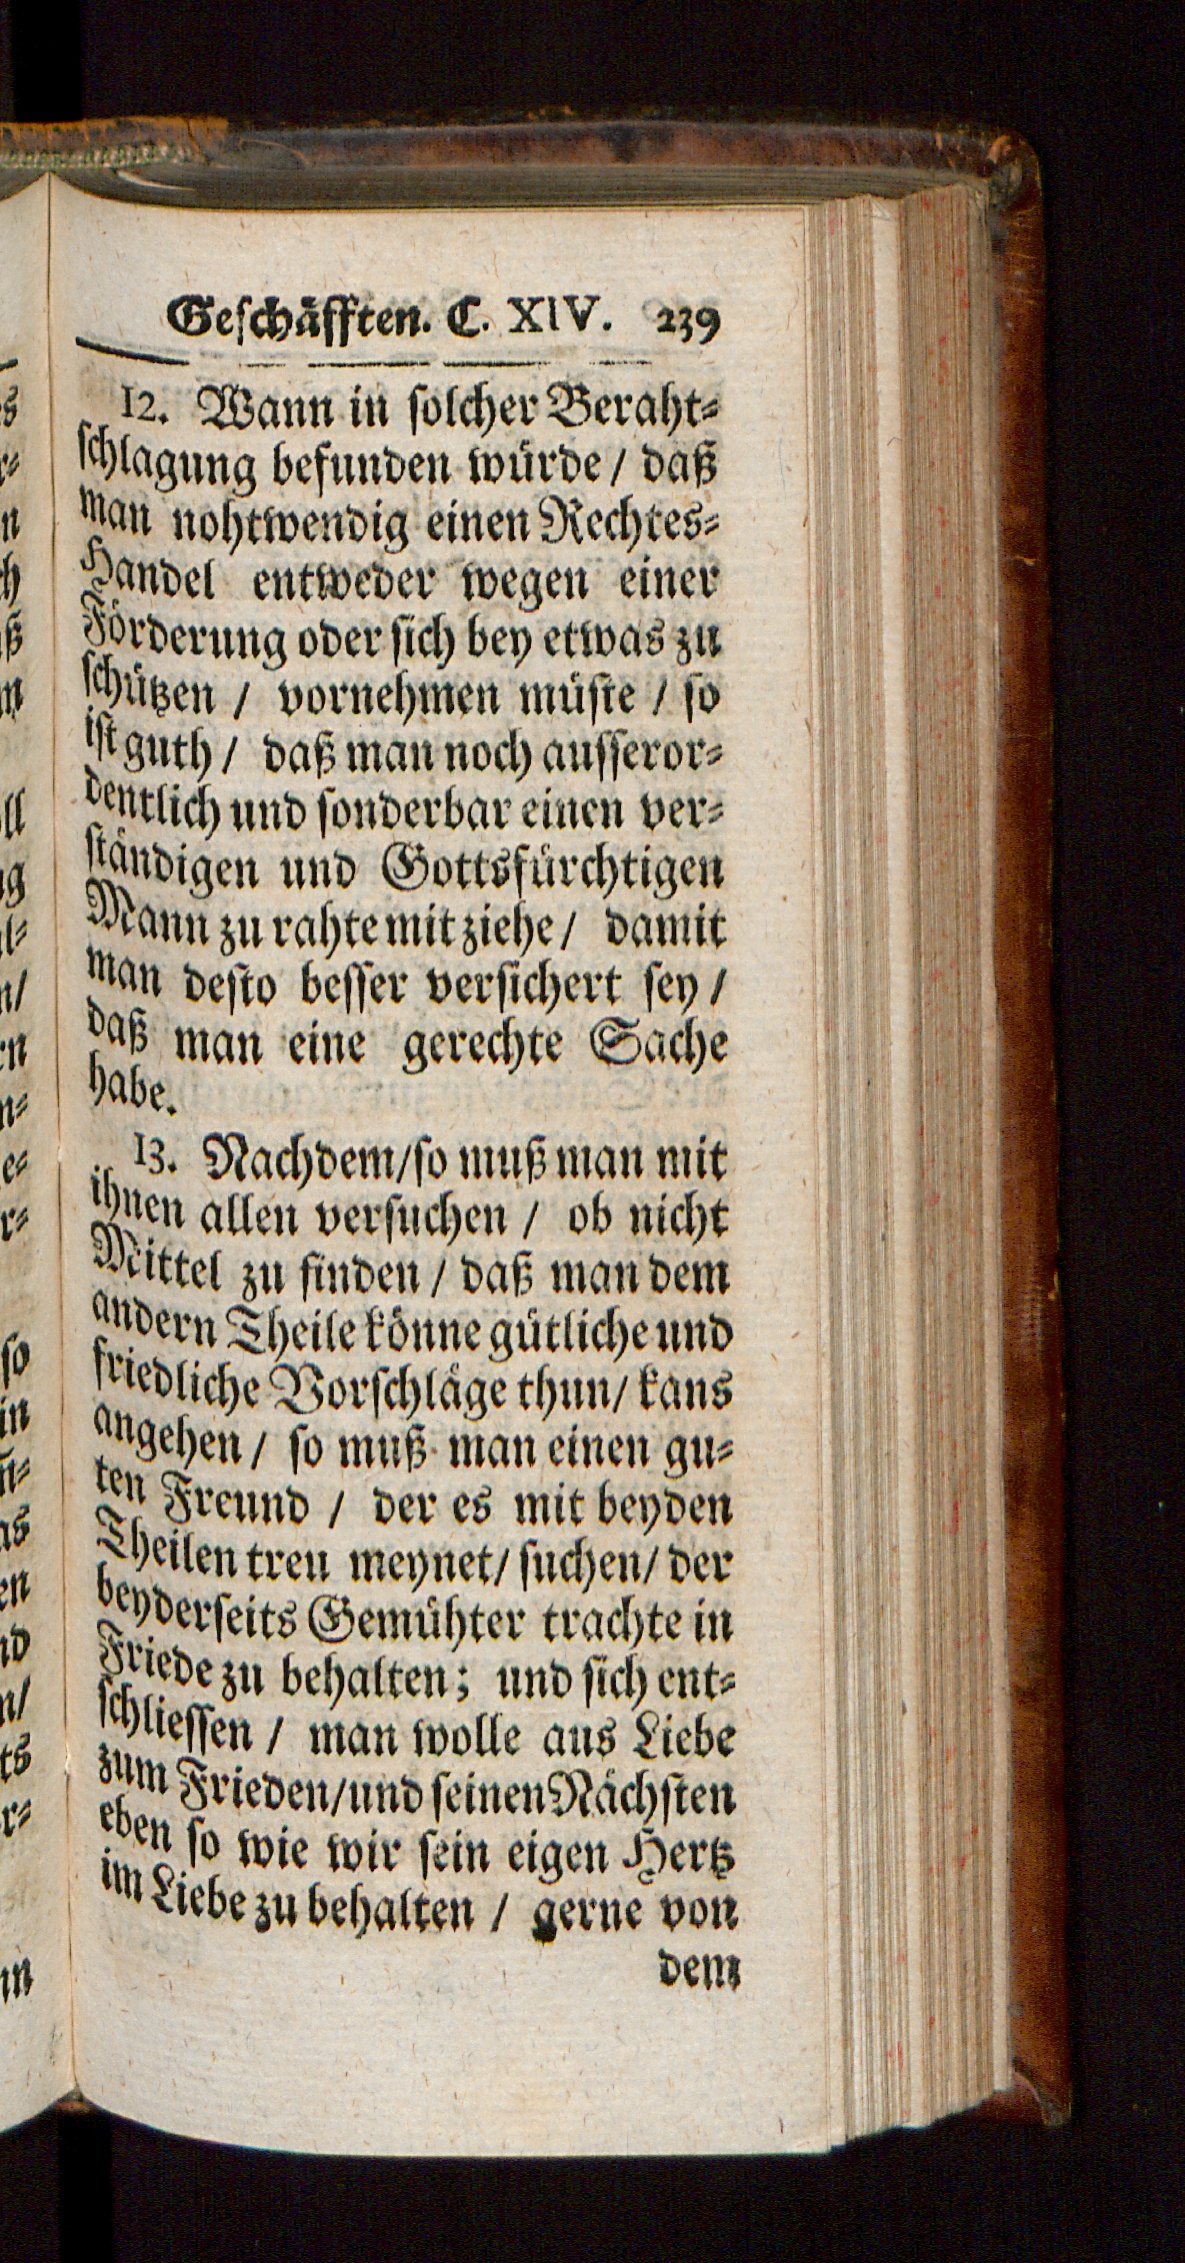 Geſchäfften. C. XIV. 239
12. Wann in ſolcher Beraht⸗
ſchlagung befunden würde / daß
man nohtwendig einen Rechtes⸗
Handel entweder wegen einer
Förderung oder ſich bey etwas zu
ſchützen / vornehmen müſte / ſo
iſt guth / daß man noch auſſeror⸗
dentlich und ſonderbar einen ver⸗
ſtändigen und Gottsfürchtigen
Mann zu rahte mit ziehe / damit
man deſto beſſer verſichert ſey /
daß man eine gerechte Sache
habe.
13. Nachdem/ſo muß man mit
ihnen allen verſuchen / ob nicht
Mittel zu finden / daß man dem
andern Theile könne gütliche und
friedliche Vorſchläge thun/ kans
angehen / ſo muß man einen gu⸗
ten Freund / der es mit beyden
Theilen treu meynet/ ſuchen/ der
beyderſeits Gemühter trachte in
Friede zu behalten; und ſich ent⸗
ſchlieſſen / man wolle aus Liebe
zum Frieden/und ſeinen Nächſten
eben ſo wie wir ſein eigen Hertz
im Liebe zu behalten / gerne von
dem